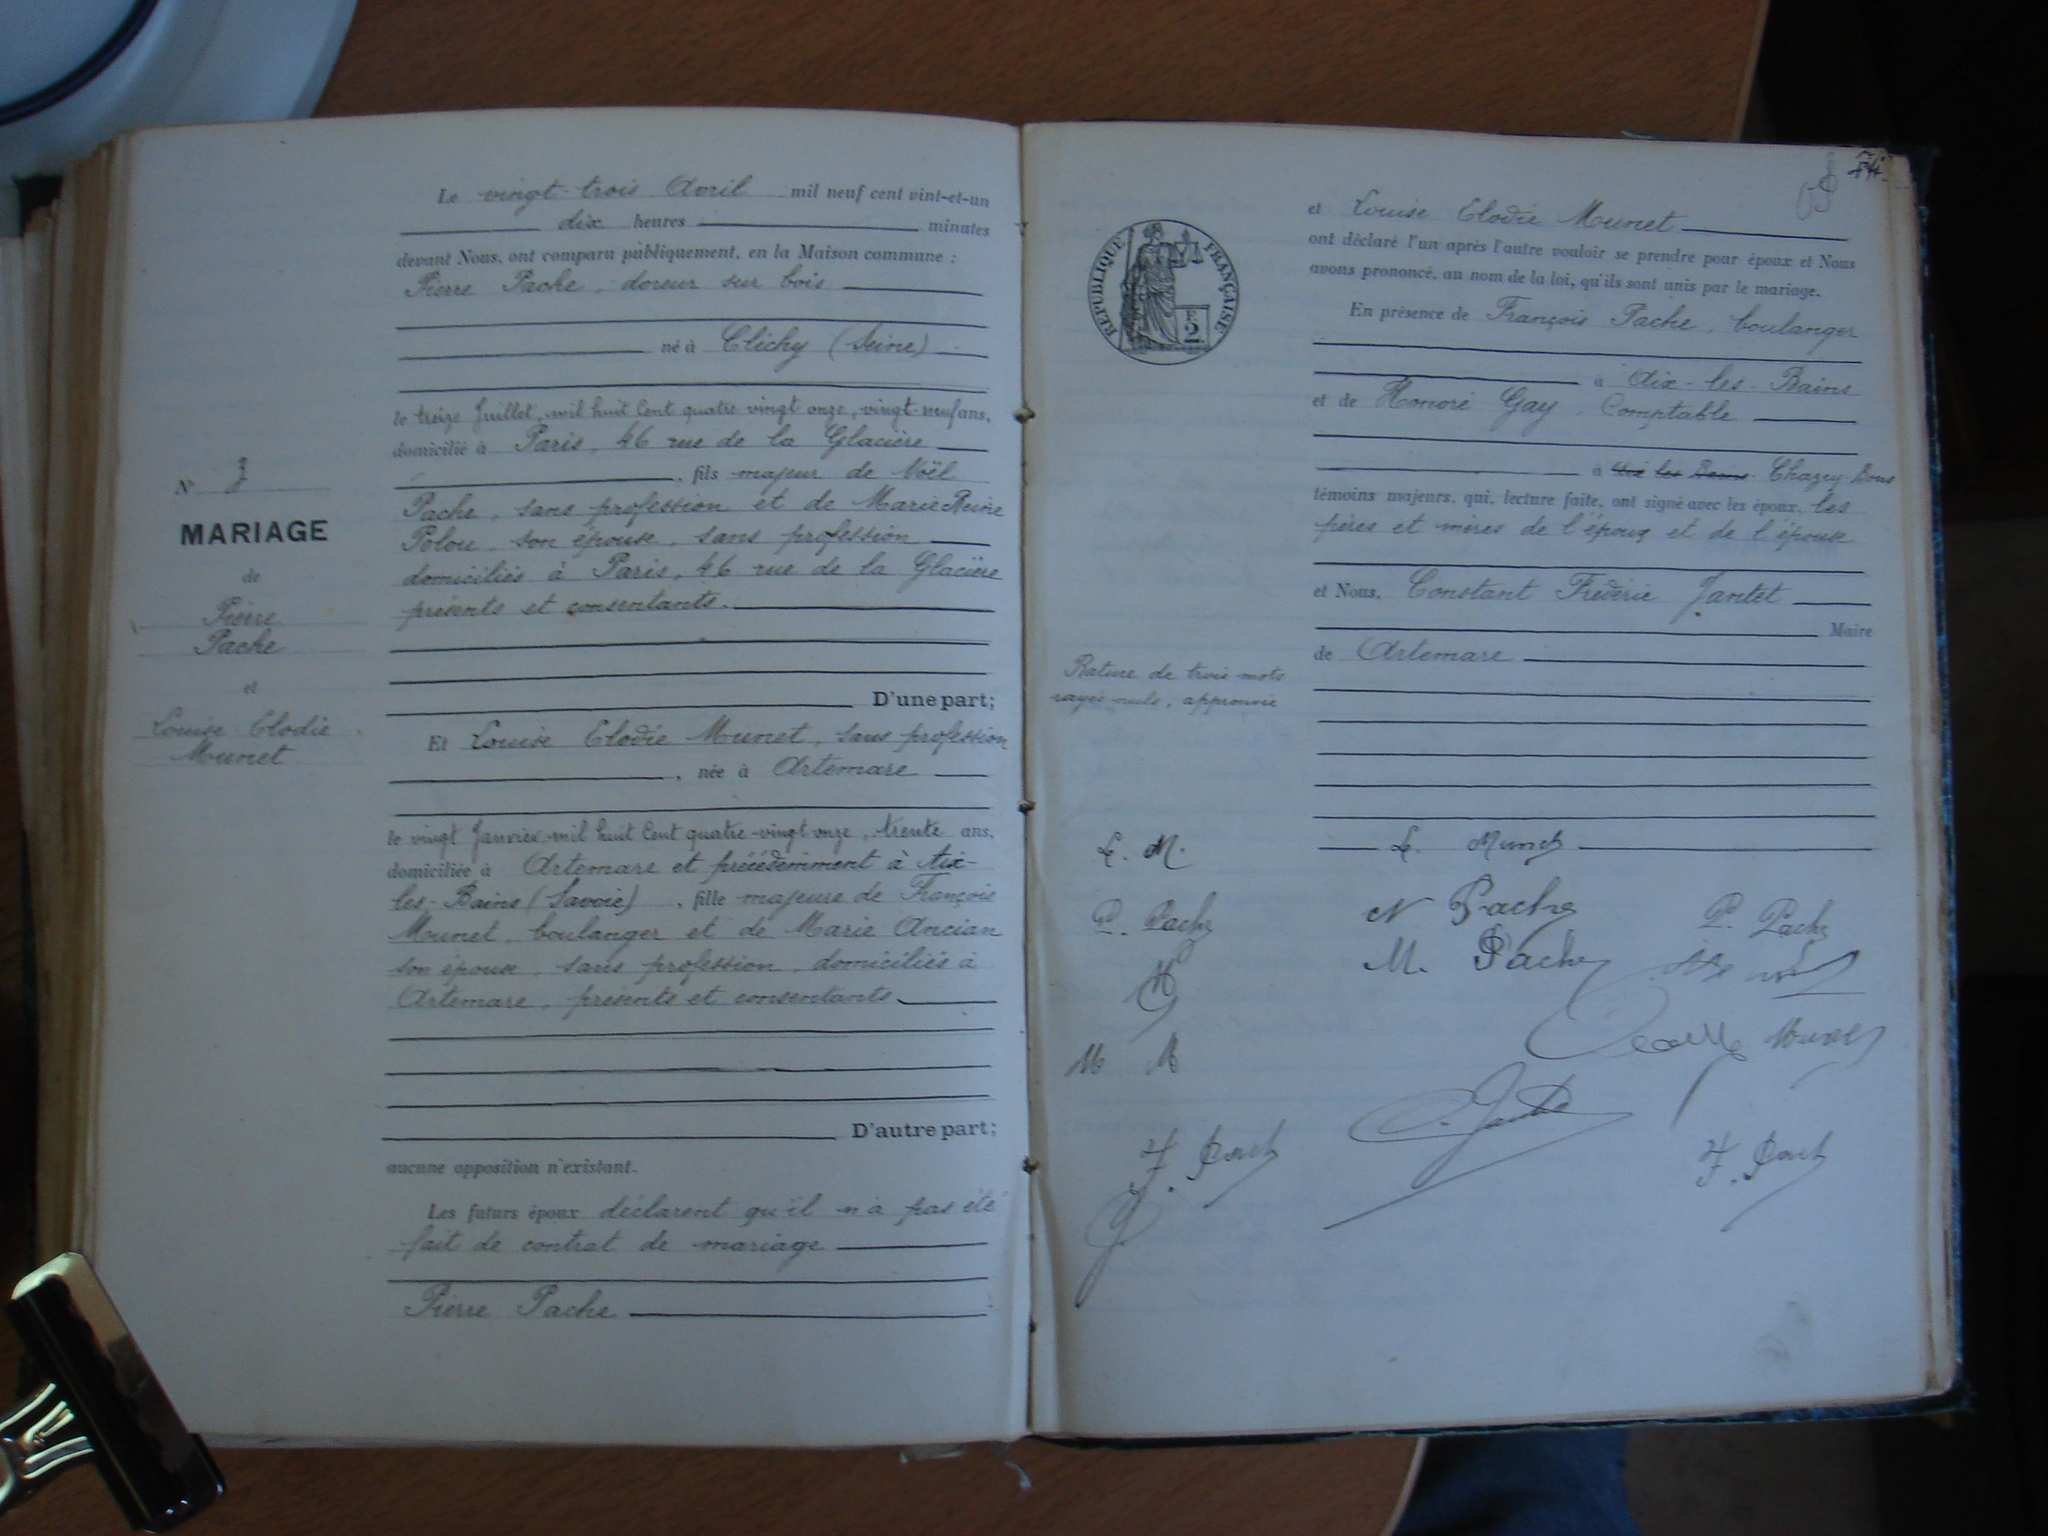 Le vingt-trois Avril mil neuf cent vint-et-un
dix heures minutes
devant Nous, ont comparu publiquement, en la Maison commune :
Pierre Pache, doreur sur bois
né à Clichy (Seine)
le treize Juillet mil huit Cent quatre vingt onze, vingt-neuf ans,
domicilié à Paris, 46 rue de la Glacière
, fils majeur de Noël
Pache, sans profession et de Marie Reine
Polou, son épouse, sans profession
domiciliés à Paris, 46 rue de la Glacière
présents et consentants.
D'une part;
Et Louise Elodie Munet, sans profession
, née à Artemare
le vingt Janvier mil huit Cent quatre-vingt onze, trente ans,
domiciliée à Artemare et précédemment à Aix-
les-Bains (Savoie), fille majeure de François
Munet, boulanger et de Marie Ancian
son épouse, sans profession, domiciliés à
Artemare, présents et consentants
D'autre part;
aucune opposition n'existant.
Les futurs époux déclarent qu'il n'a pas été
fait de contrat de mariage
Pierre Pache
N° 3
MARIAGE
de
Pierre
Pache
et
Louise Elodie
Munet
RÉPUBLIQUE FRANÇAISE
2
et Louise Elodie Munet
ont déclaré l'un après l'autre vouloir se prendre pour époux et Nous
avons prononcé, au nom de la loi, qu'ils sont unis par le mariage.
En présence de François Pache, boulanger
à Aix-les-Bains
et de Honoré Gay, Comptable
à Aix les Bains Chazey-Bons
témoins majeurs, qui, lecture faite, ont signé avec les époux, les
pères et mères de l'époux et de l'épouse
et Nous, Constant Fréderic Jantet
Maire
de Artemare
Rature de trois mots
rayés nuls, approuvée
L. M.
L. Munet
P. Pache
N Pache
P. Pache
M. Pache
M M
Munet
C. Jantet